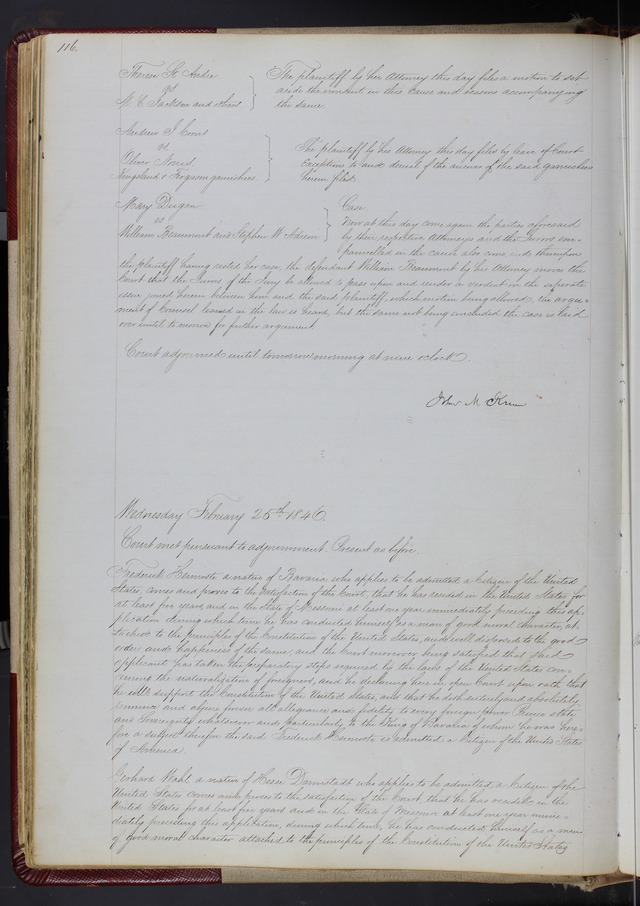 116.
Therese St Andre
vs
M. C. Jackson and others
The plaintiff by her Attorney this day files a motion to set
aside the nonsuit in this cause and reasons accompanying
the same.
Andrew J
vs
Oliver Norris
Kingsland & Ferguson garnishees
The plaintiff by his Attorney this day files by leave of Court
exceptions to and denial of the answer of the said garnishees
herein filed.
Mary Dugan
vs
William Beaumont and Stephen W Adreon
Case
Now at this day come again the parties aforesaid
by their respective Attorneys and the Jurors em-
pannelled in the cause also come, and thereupon
the plaintiff having rested her case, the defendant William Beaumont by his Attorney moves the
Court that the Jurors of the Jury be allowed to pass upon and render a verdict in the separate
issue joined herein between him and the said plaintiff, which motion being allowed, the argu-
ment of Counsel learned in the law is heard, but the same not being concluded the case is laid
over until to morrow for further argument
Court adjourned until tomorrow morning at nine o'clock.
John M. Krum
Wednesday February 25th 1846.
Court met pursuant to adjournment. Present as before.
Frederick a native of Bavaria who applies to be admitted a Citizen of the United
States, comes and proves to the satisfaction of the Court, that he has resided in the United States for
at least five years, and in the State of Missouri at least one year immediately preceding this ap-
plication during which time he has conducted himself as a man of good moral character, at-
tached to the principles of the Constitution of the United States, and well disposed to the good
order and happiness of the same, and the Court moreover being satisfied that said
applicant has taken the preparatory steps required by the laws of the United States con-
cerning the naturalization of foreigners, and he declaring here in open Court upon oath that
he will support the Constitution of the United States, and that he doth absolutely
renounce and abjure forever all allegiance and fidelity to every foreign power Prince State
and Sovereignty whatsoever and particularly to the King of Bavaria of whom he was here-
fore a subject therefor the said Frederick is admitted a Citizen of the United States
of America.
Gerhard Wahl a native of Hesse Darmstadt who applies to be admitted a Citizen of the
United States comes and proves to the satisfaction of the Court that he has resided in the
United States for at least five years and in the State of Missouri at least one year imme-
diately preceding this application, during which time he has conducted himself as a man
of good moral character attached to the principles of the Constitution of the United States